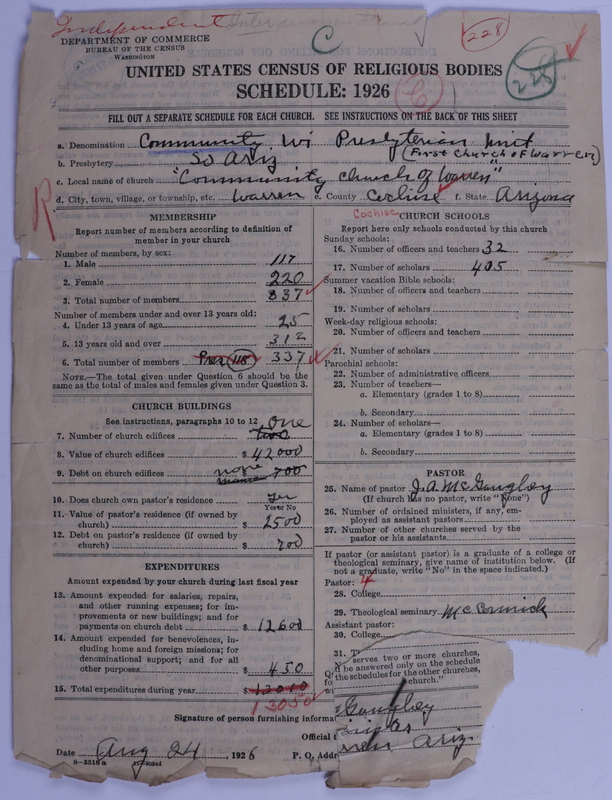 Independent
228
DEPARTMENT OF COMMERCE
BUREAU OF THE CENSUS
WASHINGTON
C
228
UNITED STATES CENSUS OF RELIGIOUS BODIES
SCHEDULE: 1926
FILL OUT A SEPARATE SCHEDULE FOR EACH CHURCH. SEE INSTRUCTIONS ON THE BACK OF THIS SHEET
a. Denomination Community, Wi Presbyterian Unit
b. Presbytery So Ariz (First Church of Warren)
c. Local name of church "Community church of Warren"
d. City, town, village, or township, etc. Warren e. County Cochise f. State Arizona
Cochise
R
MEMBERSHIP
Report number of members according to definition of
member in your church
Number of members, by sex:
1. Male 117
2. Female 220
3. Total number of members 337
Number of members under and over 13 years old:
4. Under 13 years of age 25
5. 13 years old and over 312
6. Total number of members Pres 118 337
NOTE.—The total given under Question 6 should be
same as the total of males and females given under Question 3.
CHURCH BUILDINGS
See instructions, paragraphs 10 to 12 One
7. Number of church edifices two
8. Value of church edifices $ 42000
9. Debt on church edifices none 700
10. Does church own pastor's residence yes
Yes or No
11. Value of pastor's residence (if owned by
church) $ 2500
12. Debt on pastor's residence (if owned by
church) $ 700
EXPENDITURES
Amount expended by your church during last fiscal year
13. Amount expended for salaries, repairs,
and other running expenses; for im-
provements or new buildings; and for
payments on church debt $ 12600
14. Amount expended for benevolences, in-
cluding home and foreign missions; for
denominational support; and for all
other purposes $ 450
15. Total expenditures during year $ 13010
13050
CHURCH SCHOOLS
Report here only schools conducted by this church
Sunday schools:
16. Number of officers and teachers 32
17. Number of scholars 405
Summer vacation Bible schools:
18. Number of officers and teachers
19. Number of scholars
Week-day religious schools:
20. Number of officers and teachers
21. Number of scholars
Parochial schools:
22. Number of administrative officers
23. Number of teachers—
a. Elementary (grades 1 to 8)
b. Secondary
24. Number of scholars—
a. Elementary (grades 1 to 8)
b. Secondary
PASTOR
25. Name of pastor J. A. McGaughey
(If church has no pastor, write "None")
26. Number of ordained ministers, if any, em-
ployed as assistant pastors
27. Number of other churches served by the
pastor or his assistants
If pastor (or assistant pastor) is a graduate of a college or
theological seminary, give name of institution below. (If
not a graduate, write "No" in the space indicated.)
Pastor: 4
28. College
29. Theological seminary McCormick
Assistant pastor:
30. College
31. T
serves two or more churches,
ll be answered only on the schedule
the schedules for the other churches,
church."
Signature of person furnishing informa
Official t
Date Aug 24, 1926 P. O. Addr
Ariz.
8-5518a